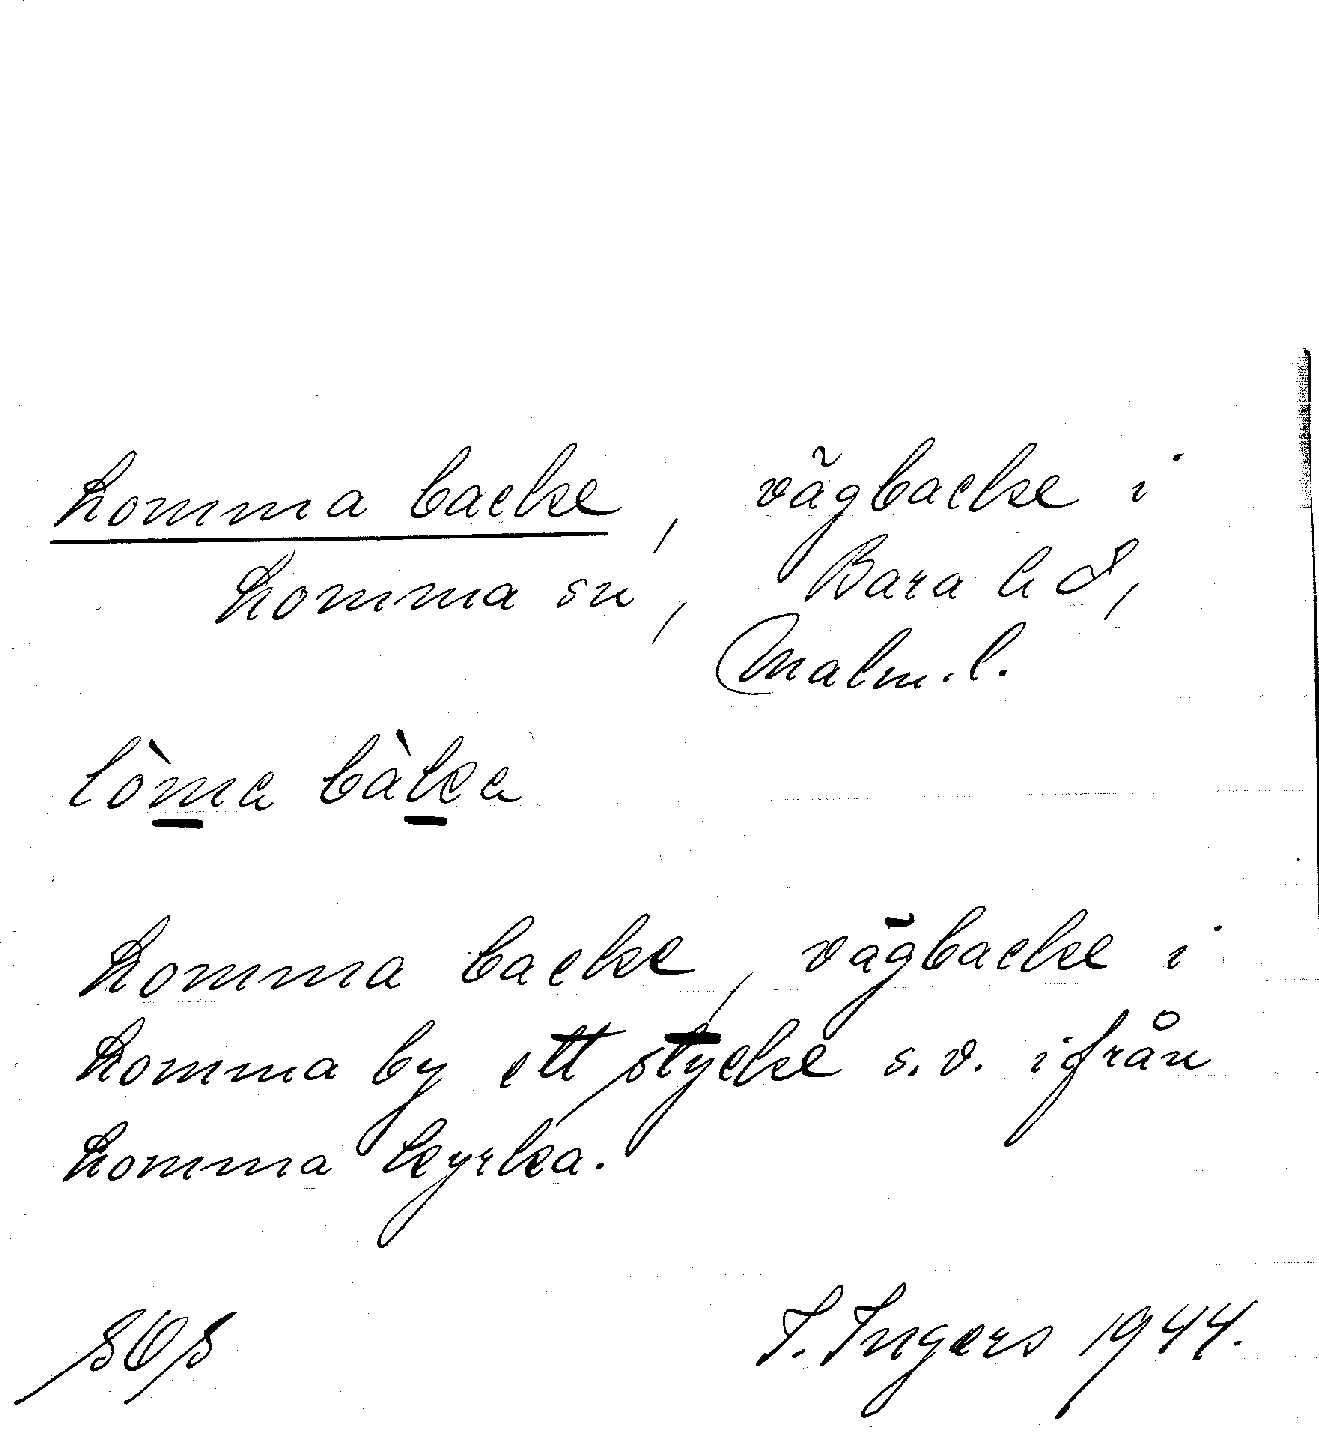 Lomma backe, vägbacke i
Lomma sn, Bara hd,
Malm. l.
lòma bàka
Lomma backe, vägbacke i
Lomma by ett stycke s.v. ifrån
Lomma kyrka.
SOS I. Ingers 1944.